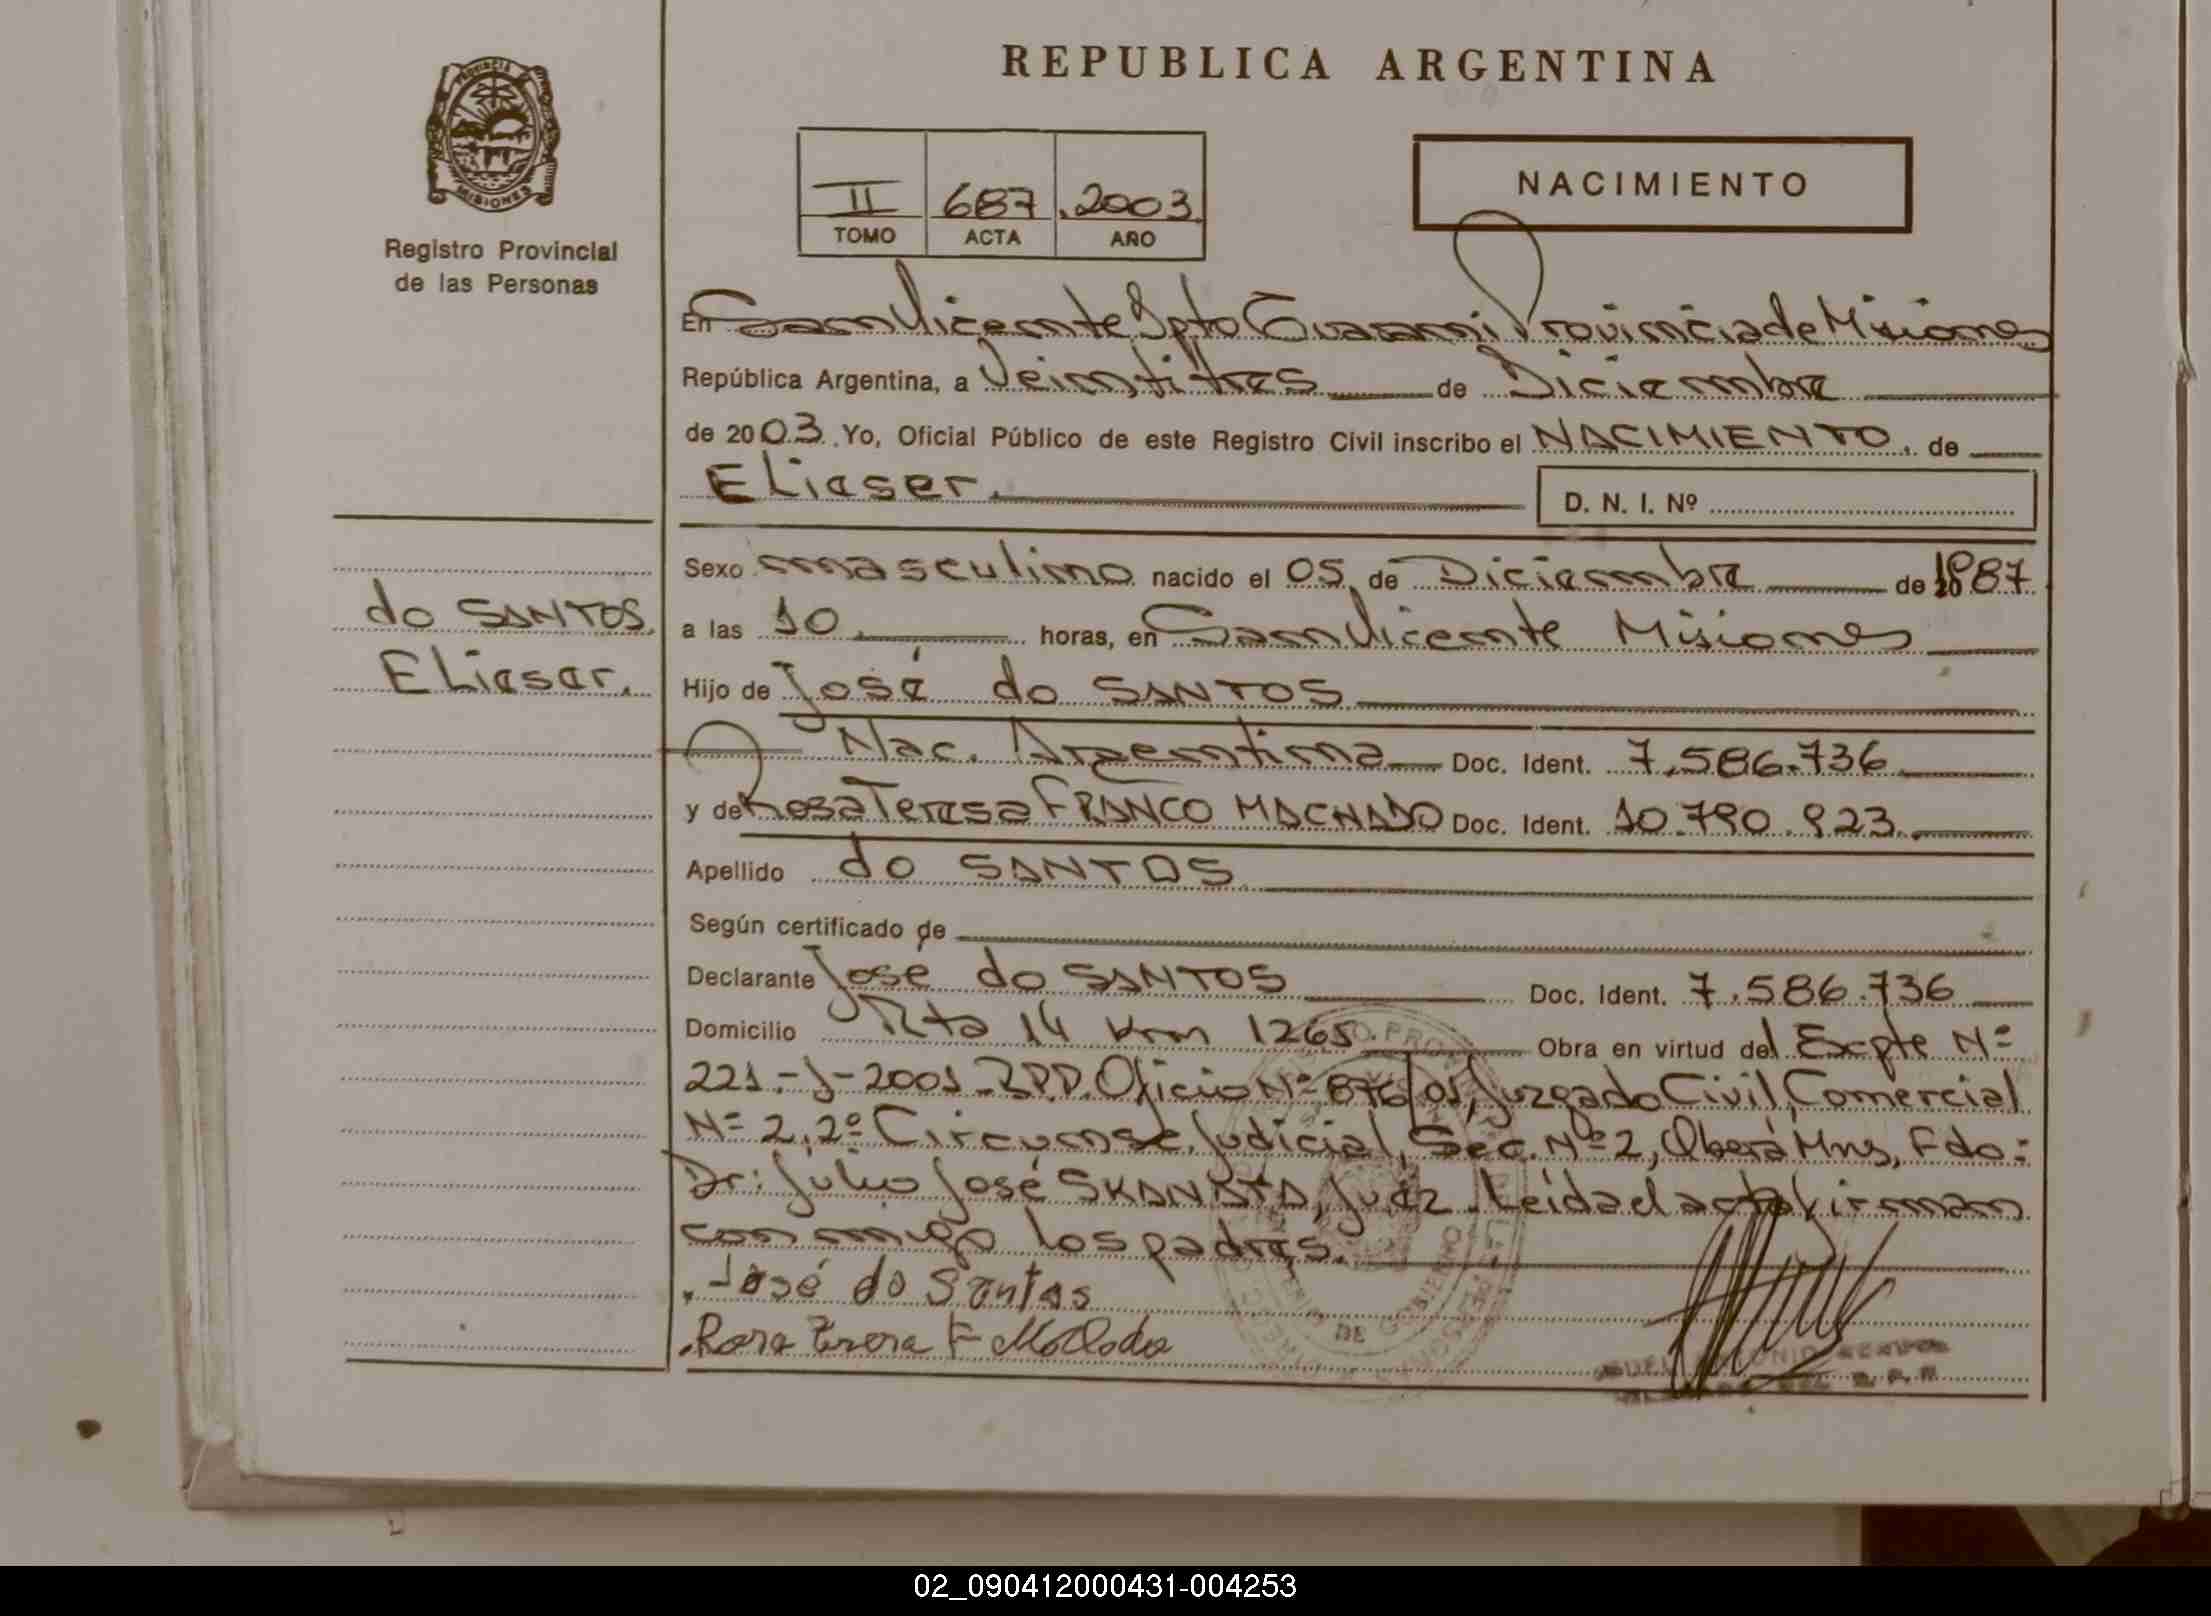 REPUBLICA ARGENTINA
PROVINCIA DE MISIONES
Registro Provincial
de las Personas
II 687 2003
TOMO ACTA AÑO
NACIMIENTO
En San Vicente Dpto Guarani Provincia de Misiones
República Argentina, a Veintitres de Diciembre
de 2003. Yo, Oficial Público de este Registro Civil inscribo el NACIMIENTO. de
Elieser.
D. N. I. Nº
do SANTOS
Elieser.
Sexo masculino nacido el 05 de Diciembre de 1987
a las 10 horas, en San Vicente Misiones
Hijo de José do SANTOS
Nac. Argentina Doc. Ident. 7.586.736
y de Rosa Teresa FRANCO MACHADO Doc. Ident. 10.790.923.
Apellido do SANTOS
Según certificado de
Declarante José do SANTOS Doc. Ident. 7.586.736
Domicilio Rta 14 Km 1265 Obra en virtud del Expte Nº
221-J-2001 Oficio Nº 876/01, Juzgado Civil, Comercial
Nº 2, 2º Circunsc. Judicial, Sec. Nº 2, Oberá Mns, Fdo:
Dr: Julio José Juez. Leida el acta firman
con migo los padres.
José do Santos
Rosa Teresa F Machado
DE GOBIERNO
02_090412000431-004253